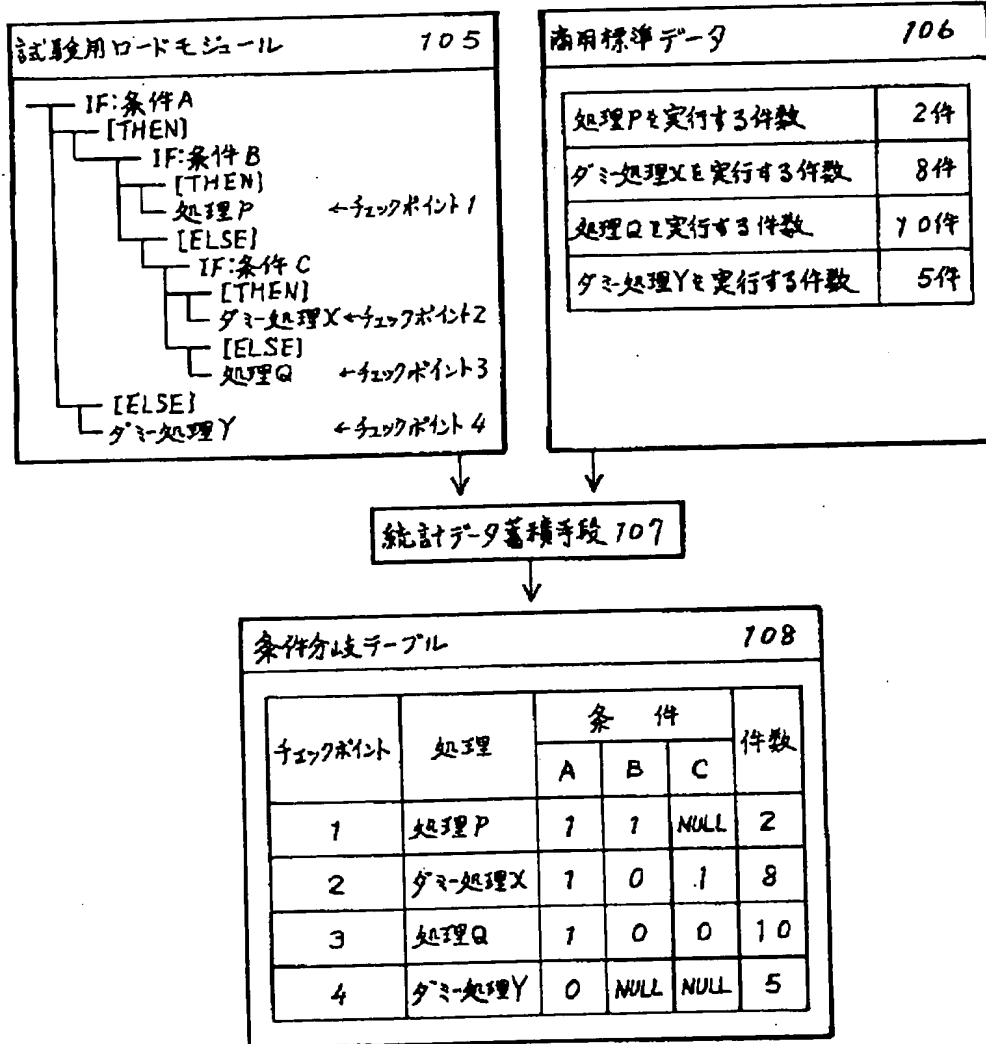 試験用ロードモジュール 105
IF:条件A
[THEN]
IF:条件B
[THEN]
処理P ←チェックポイント1
[ELSE]
IF:条件C
[THEN]
ダミー処理X ←チェックポイント2
[ELSE]
処理Q ←チェックポイント3
[ELSE]
ダミー処理Y ←チェックポイント4
商用標準データ 106
処理Pを実行する件数 2件
ダミー処理Xを実行する件数 8件
処理Qを実行する件数 10件
ダミー処理Yを実行する件数 5件
統計データ蓄積手段 107
条件分岐テーブル 108
チェックポイント 処理 条件 件数
A B C
1 処理P 1 1 NULL 2
2 ダミー処理X 1 0 1 8
3 処理Q 1 0 0 10
4 ダミー処理Y 0 NULL NULL 5